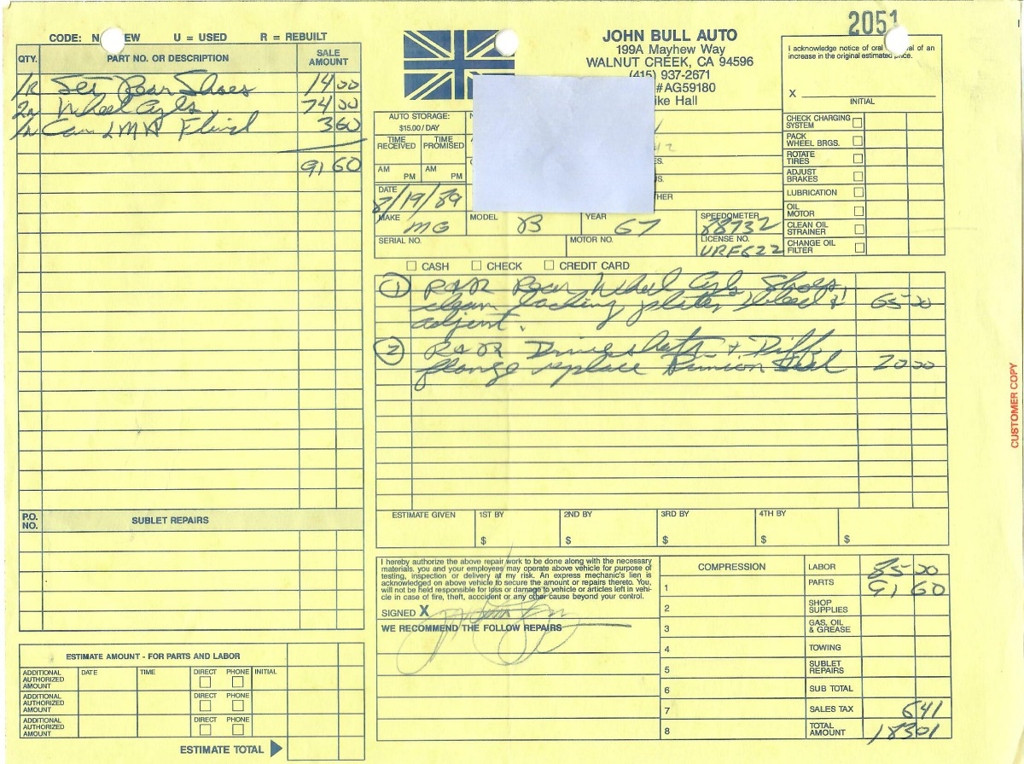 2051
CODE: N EW U = USED R = REBUILT
QTY. PART NO. OR DESCRIPTION SALE AMOUNT
1R Set Rear Shoes 14 00
2n Wheel Cyls. 74 00
Can LMA Fluid 3 60
91 60
P.O. NO. SUBLET REPAIRS
ESTIMATE AMOUNT - FOR PARTS AND LABOR
ADDITIONAL AUTHORIZED AMOUNT DATE TIME DIRECT PHONE INITIAL
ADDITIONAL AUTHORIZED AMOUNT DIRECT PHONE
ADDITIONAL AUTHORIZED AMOUNT DIRECT PHONE
ESTIMATE TOTAL
JOHN BULL AUTO
199A Mayhew Way
WALNUT CREEK, CA 94596
(415) 937-2671
#AG59180
ike Hall
I acknowledge notice of oral al of an
increase in the original estimated price.
X
INITIAL
AUTO STORAGE:
$15.00/DAY
TIME RECEIVED TIME PROMISED
AM PM AM PM
DATE
8/19/89
MAKE MG MODEL B YEAR 67 SPEEDOMETER 88732
SERIAL NO. MOTOR NO. LICENSE NO. URF622
CHECK CHARGING SYSTEM
PACK WHEEL BRGS.
ROTATE TIRES
ADJUST BRAKES
LUBRICATION
OIL MOTOR
CLEAN OIL STRAINER
CHANGE OIL FILTER
CASH CHECK CREDIT CARD
1 R&R Rear Wheel Cyls, Shoes,
clean backing plates bleed & 65 00
adjust.
2 R&R Driveshaft + Diff.
flange replace Pinion Seal 20 00
CUSTOMER COPY
ESTIMATE GIVEN 1ST BY 2ND BY 3RD BY 4TH BY
$ $ $ $ $
I hereby authorize the above repair work to be done along with the necessary
materials, you and your employees may operate above vehicle for purpose of
testing, inspection or delivery at my risk. An express mechanic's lien is
acknowledged on above vehicle to secure the amount or repairs thereto. You,
will not be held responsible for loss or damage to vehicle or articles left in vehi-
cle in case of fire, theft, accident or any other cause beyond your control.
SIGNED X
WE RECOMMEND THE FOLLOW REPAIRS
COMPRESSION
1
2
3
4
5
6
7
8
LABOR 85 00
PARTS 91 60
SHOP SUPPLIES
GAS, OIL & GREASE
TOWING
SUBLET REPAIRS
SUB TOTAL
SALES TAX 6 41
TOTAL AMOUNT 183 01